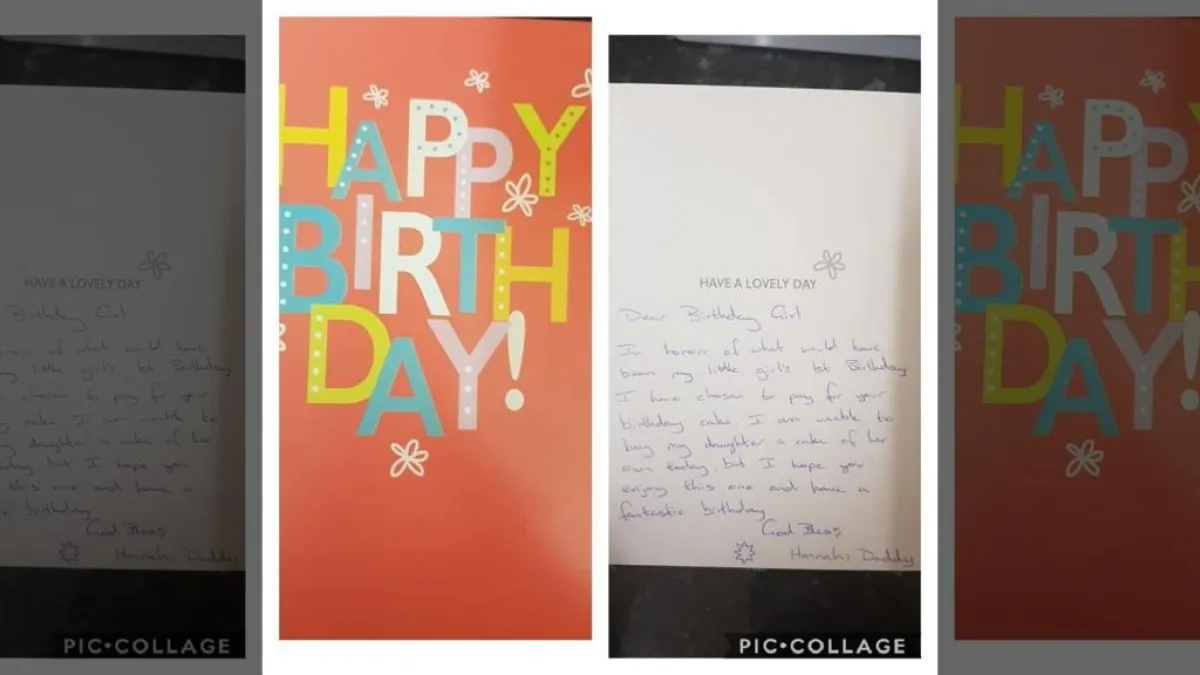 HAVE A LOVELY DAY
Birthday Girl
of what would have
my little girl's 1st Birthday
chosen to pay for your
cake. I am unable to
daughter a cake of her
but I hope you
this one and have a
birthday
God Bless
Hannah's Daddy
PIC•COLLAGE
HAPPY
BIRTH
DAY!
HAVE A LOVELY DAY
Dear Birthday Girl
In honour of what would have
been my little girl's 1st Birthday
I have chosen to pay for your
birthday cake. I am unable to
buy my daughter a cake of her
own today, but I hope you
enjoy this one and have a
fantastic birthday
God Bless
Hannah's Daddy
PIC•COLLAGE
HAPPY
BIRTH
DAY!